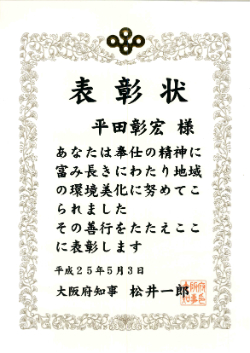 表彰状
平田彰宏 様
あなたは奉仕の精神に
富み長きにわたり地域
の環境美化に努めてこ
られました
その善行をたたえここ
に表彰します
平成25年5月3日
大阪府知事 松井一郎